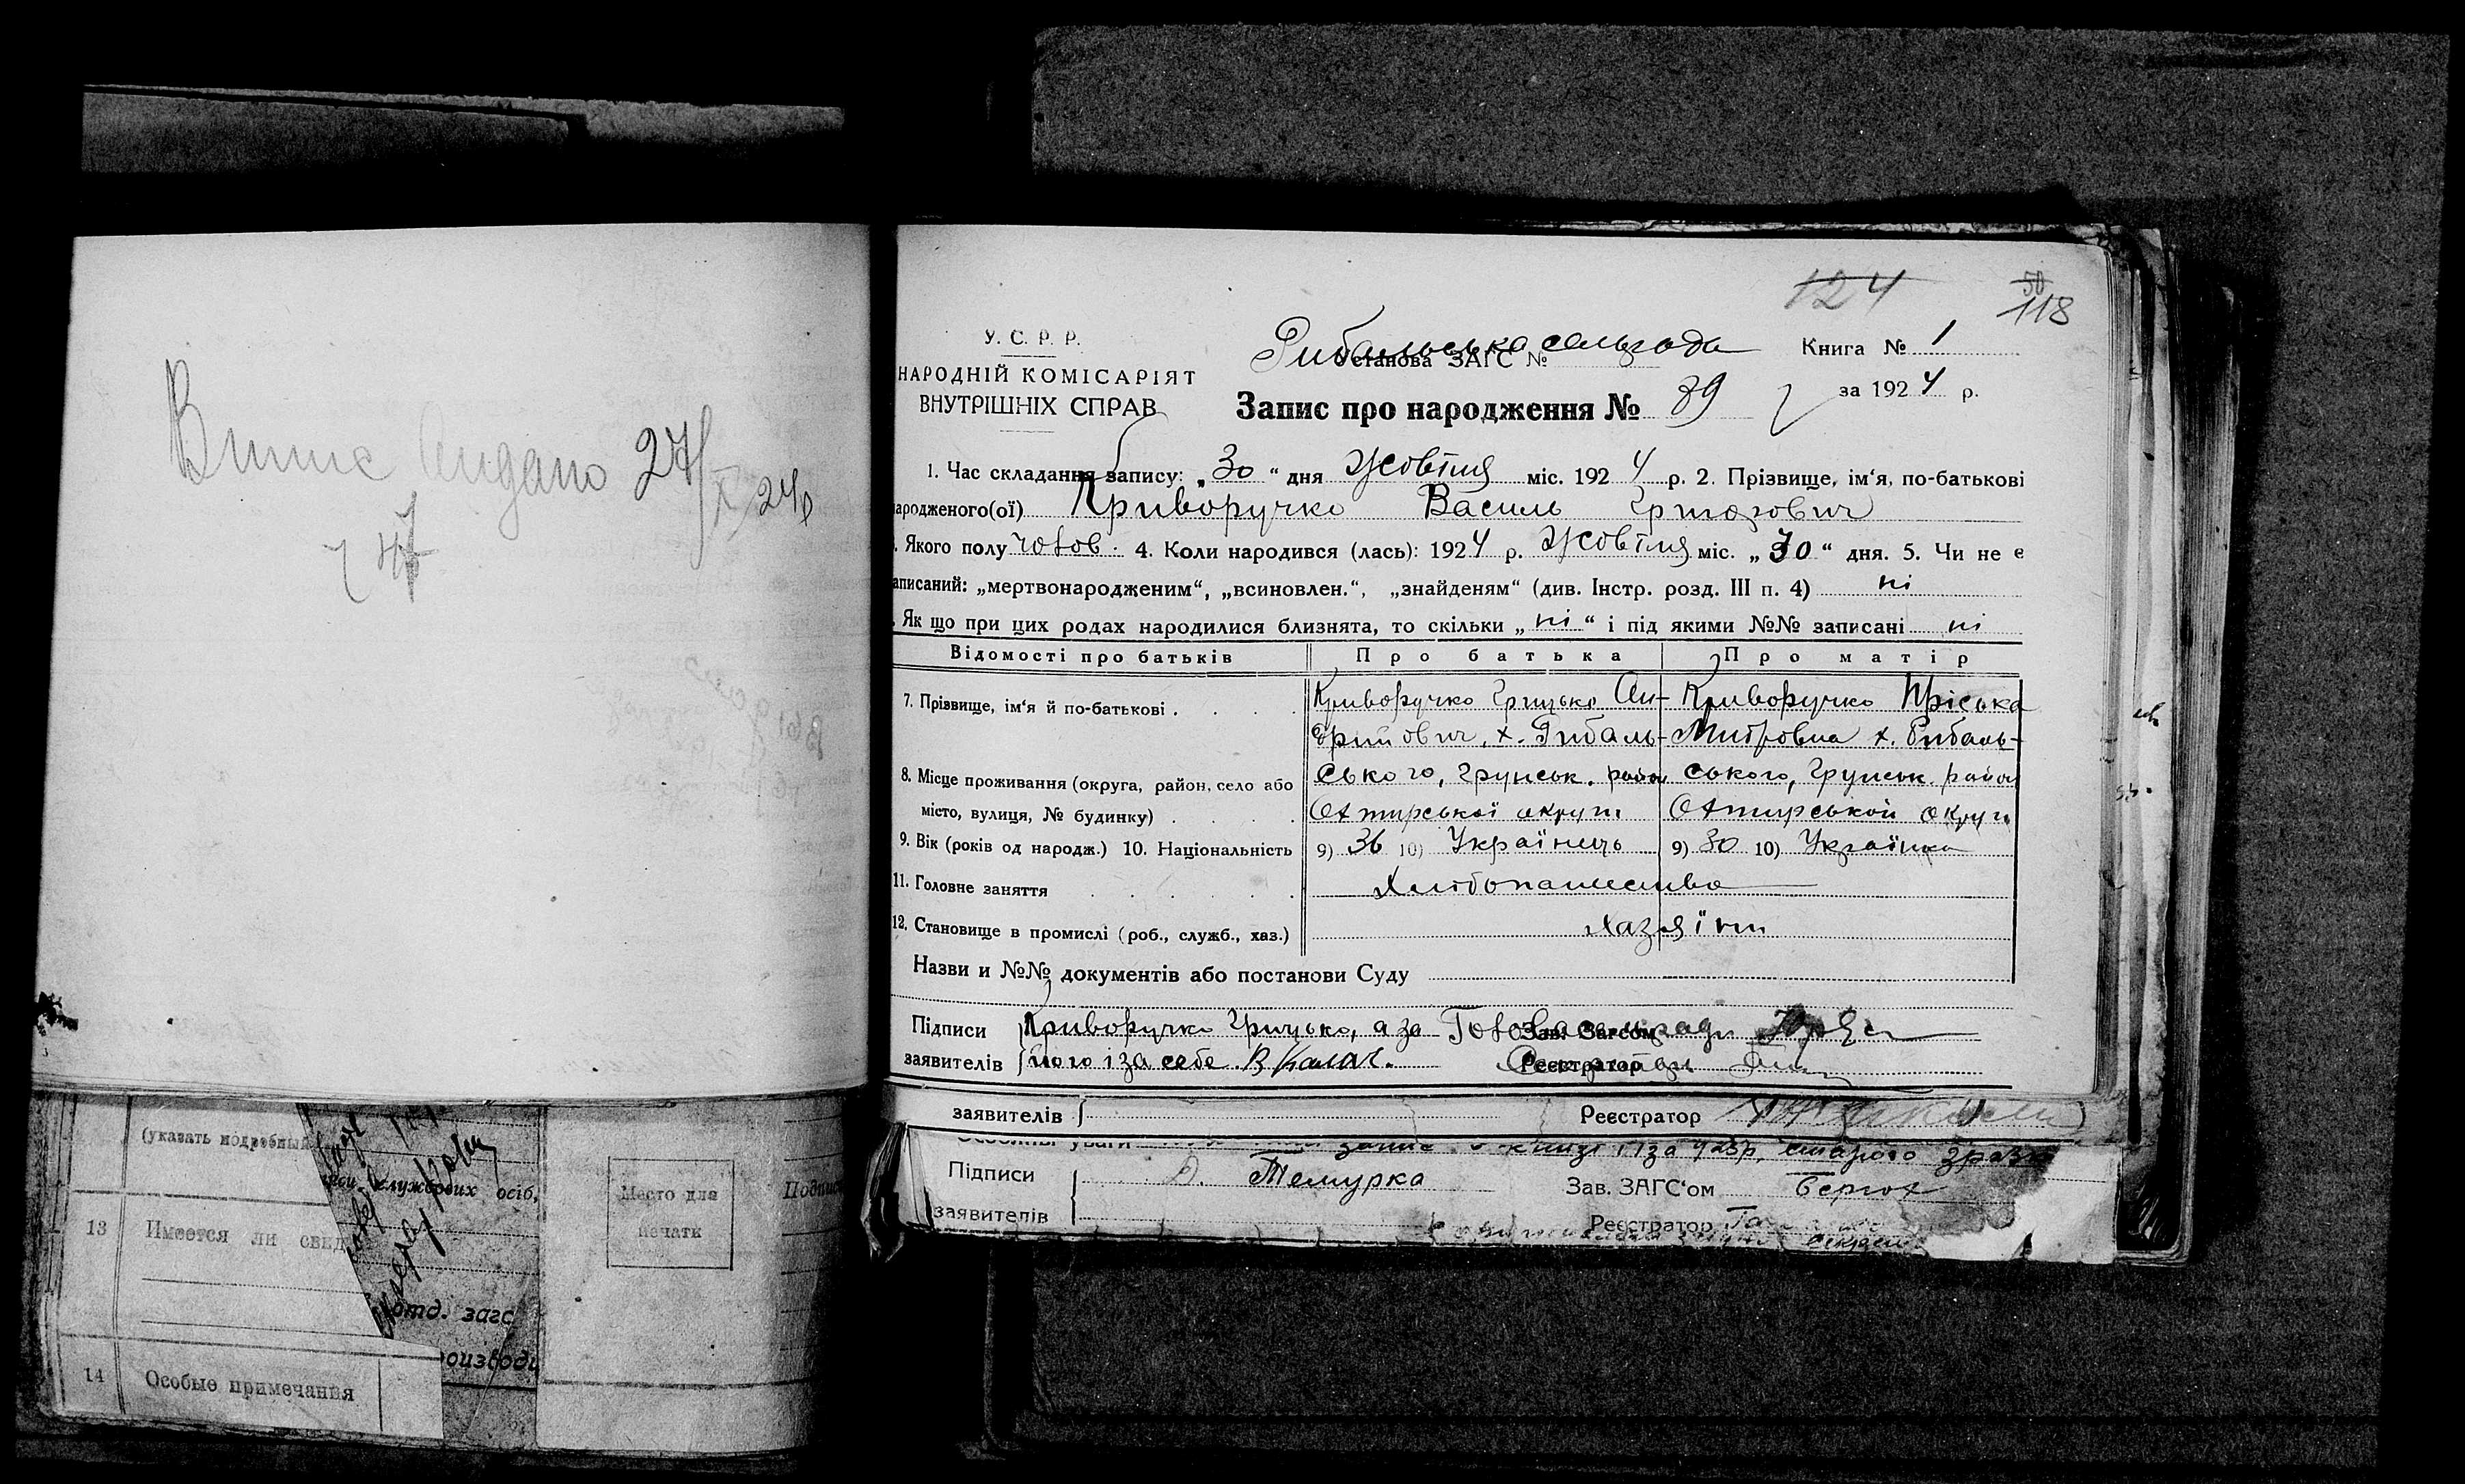 Випис видано 27/X 24р
124
50
118
У. С. Р. Р.
НАРОДНІЙ КОМІСАРІЯТ
ВНУТРІШНІХ СПРАВ
Рибальська сельрада
Установа ЗАГС №
Книга № 1
за 1924 р.
Запис про народження № 89
1. Час складання запису: „30“ дня Жовтня міс. 1924 р. 2. Прізвище, ім‘я, по-батькові
народженого(ої) Криворучко Василь Григорович
. Якого полу чолов. 4. Коли народився (лась): 1924 р. Жовтня міс. „30“ дня. 5. Чи не є
записаний: „мертвонародженим“, „всиновлен.“, „знайденям“ (див. Інстр. розд. III п. 4) ні
. Як що при цих родах народилися близнята, то скільки „ні“ і під якими №№ записані ні
Відомості про батьків Про батька Про матір
7. Прізвище, ім‘я й по-батькові . Криворучко Грицько Ан- Криворучко Пріська
дрийович, х. Рибаль- Митровна х. Рибаль-
8. Місце проживання (округа, район, село або ського, Грунськ. район ського, Грунськ. район
місто, вулиця, № будинку) . Охтирської округи Охтирськой округи
9. Вік (років од народж.) 10. Національність 9) 36 10) Українець 9) 30 10) Українка
11. Головне заняття Хлібопашество
12. Становище в промислі (роб., служб., хаз.) хазяїни
Назви и №№ документів або постанови Суду
Підписи Криворучко Грицько, а за Голова сельради
Зав. Загсом
заявителів його і за себе В Калач. Секретарь
Реєстратор
заявителів Реєстратор
запис в книзі 1 за 1923р, старого зразк
Підписи Темурка Зав. ЗАГС‘ом
заявителів Реєстратор
(указать подробный
службових осіб,
Место для
печати
Подпис
13 Имеется ли свид
отд. загс
14 Особые примечания